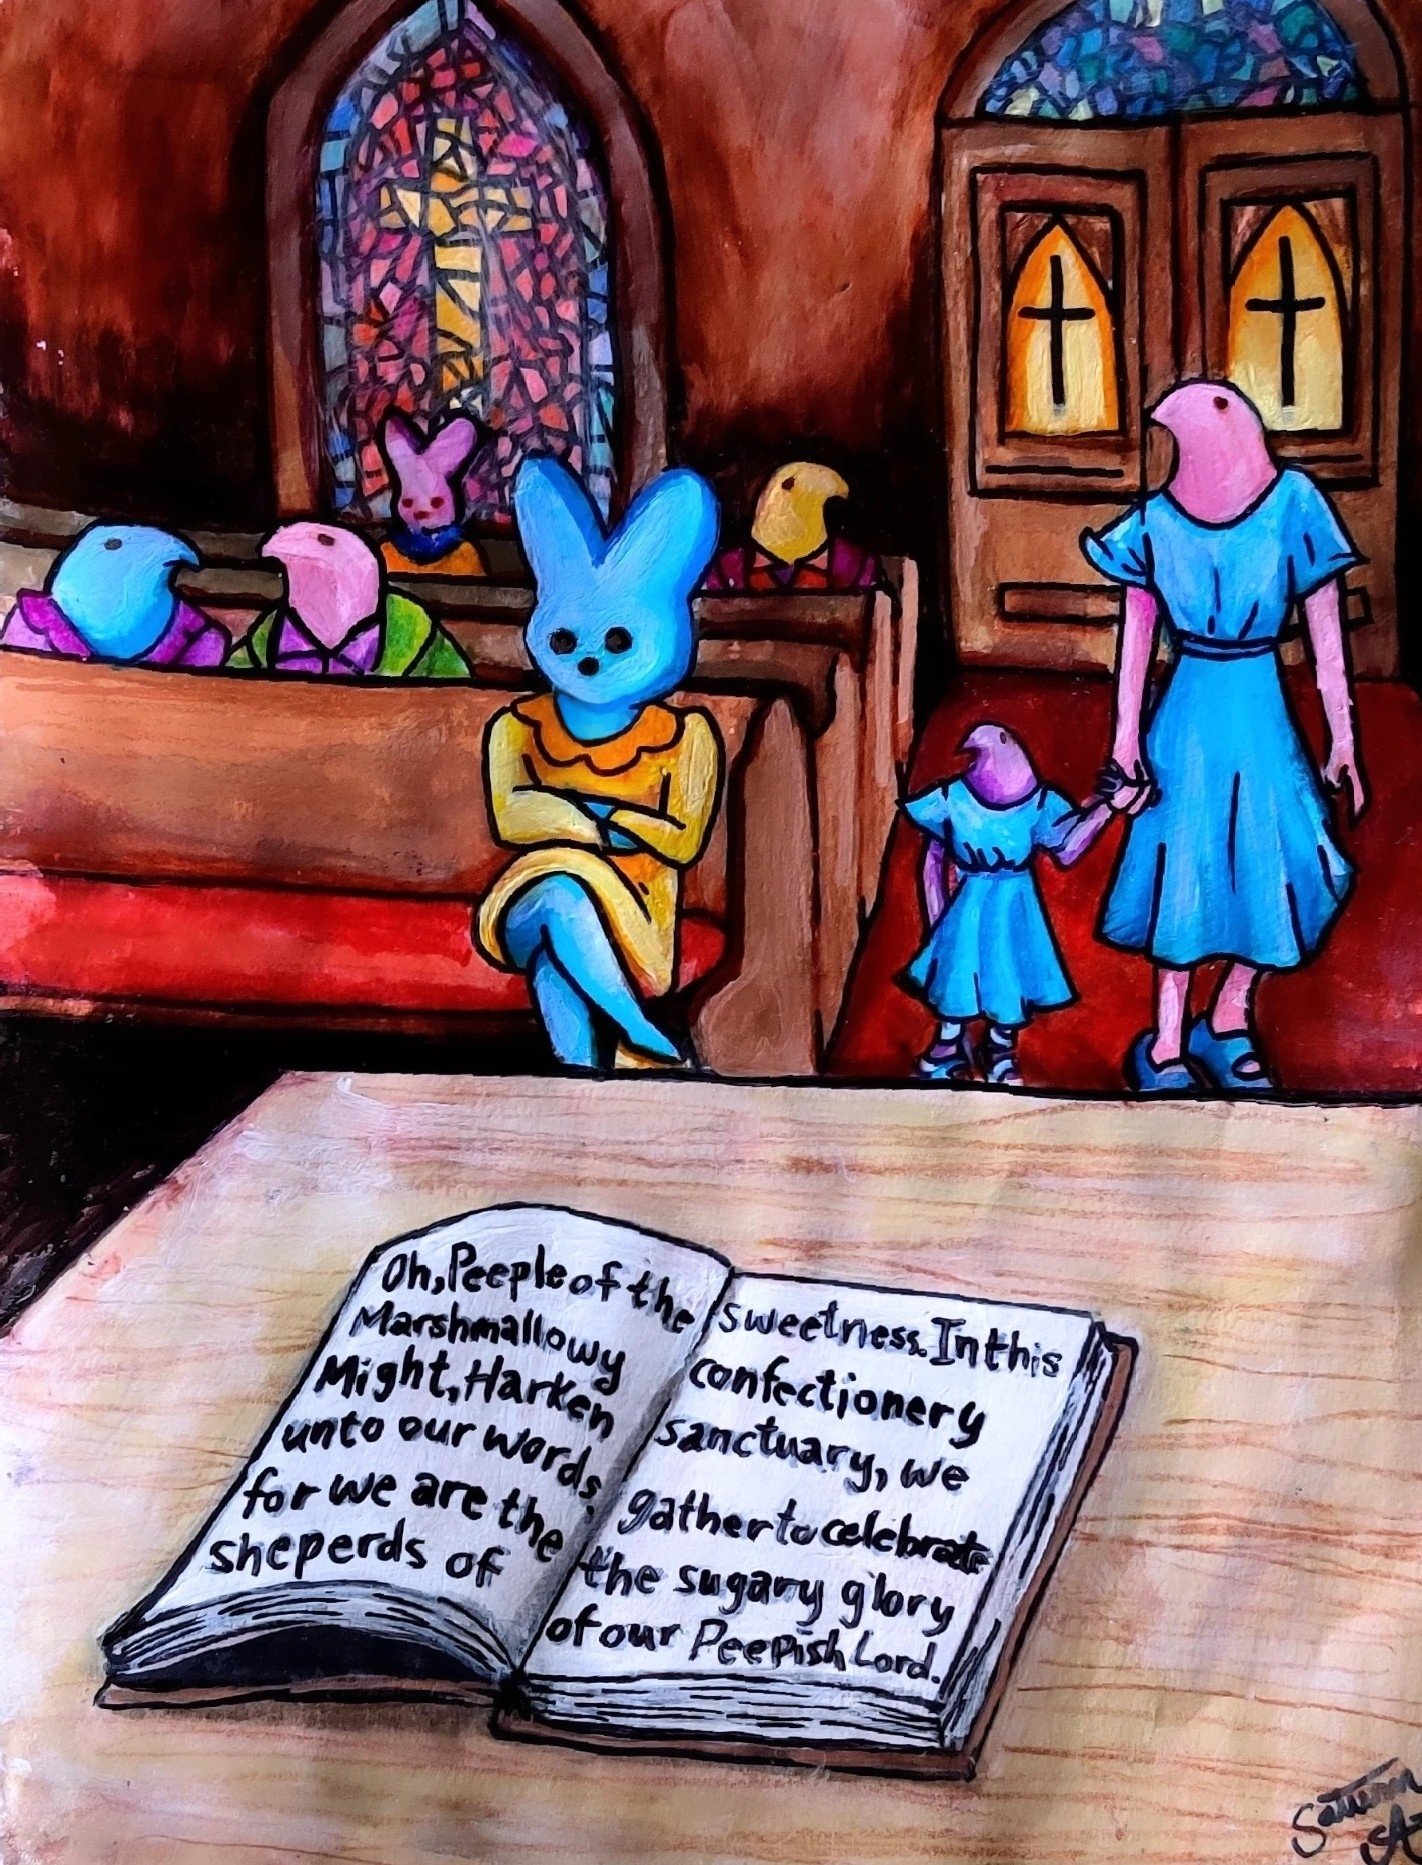 Oh, Peeple of the
Marshmallowy
Might, Harken
unto our words,
for we are the
sheperds of
sweetness. In this
confectionery
sanctuary, we
gather to celebrate
the sugary glory
of our Peepish Lord.